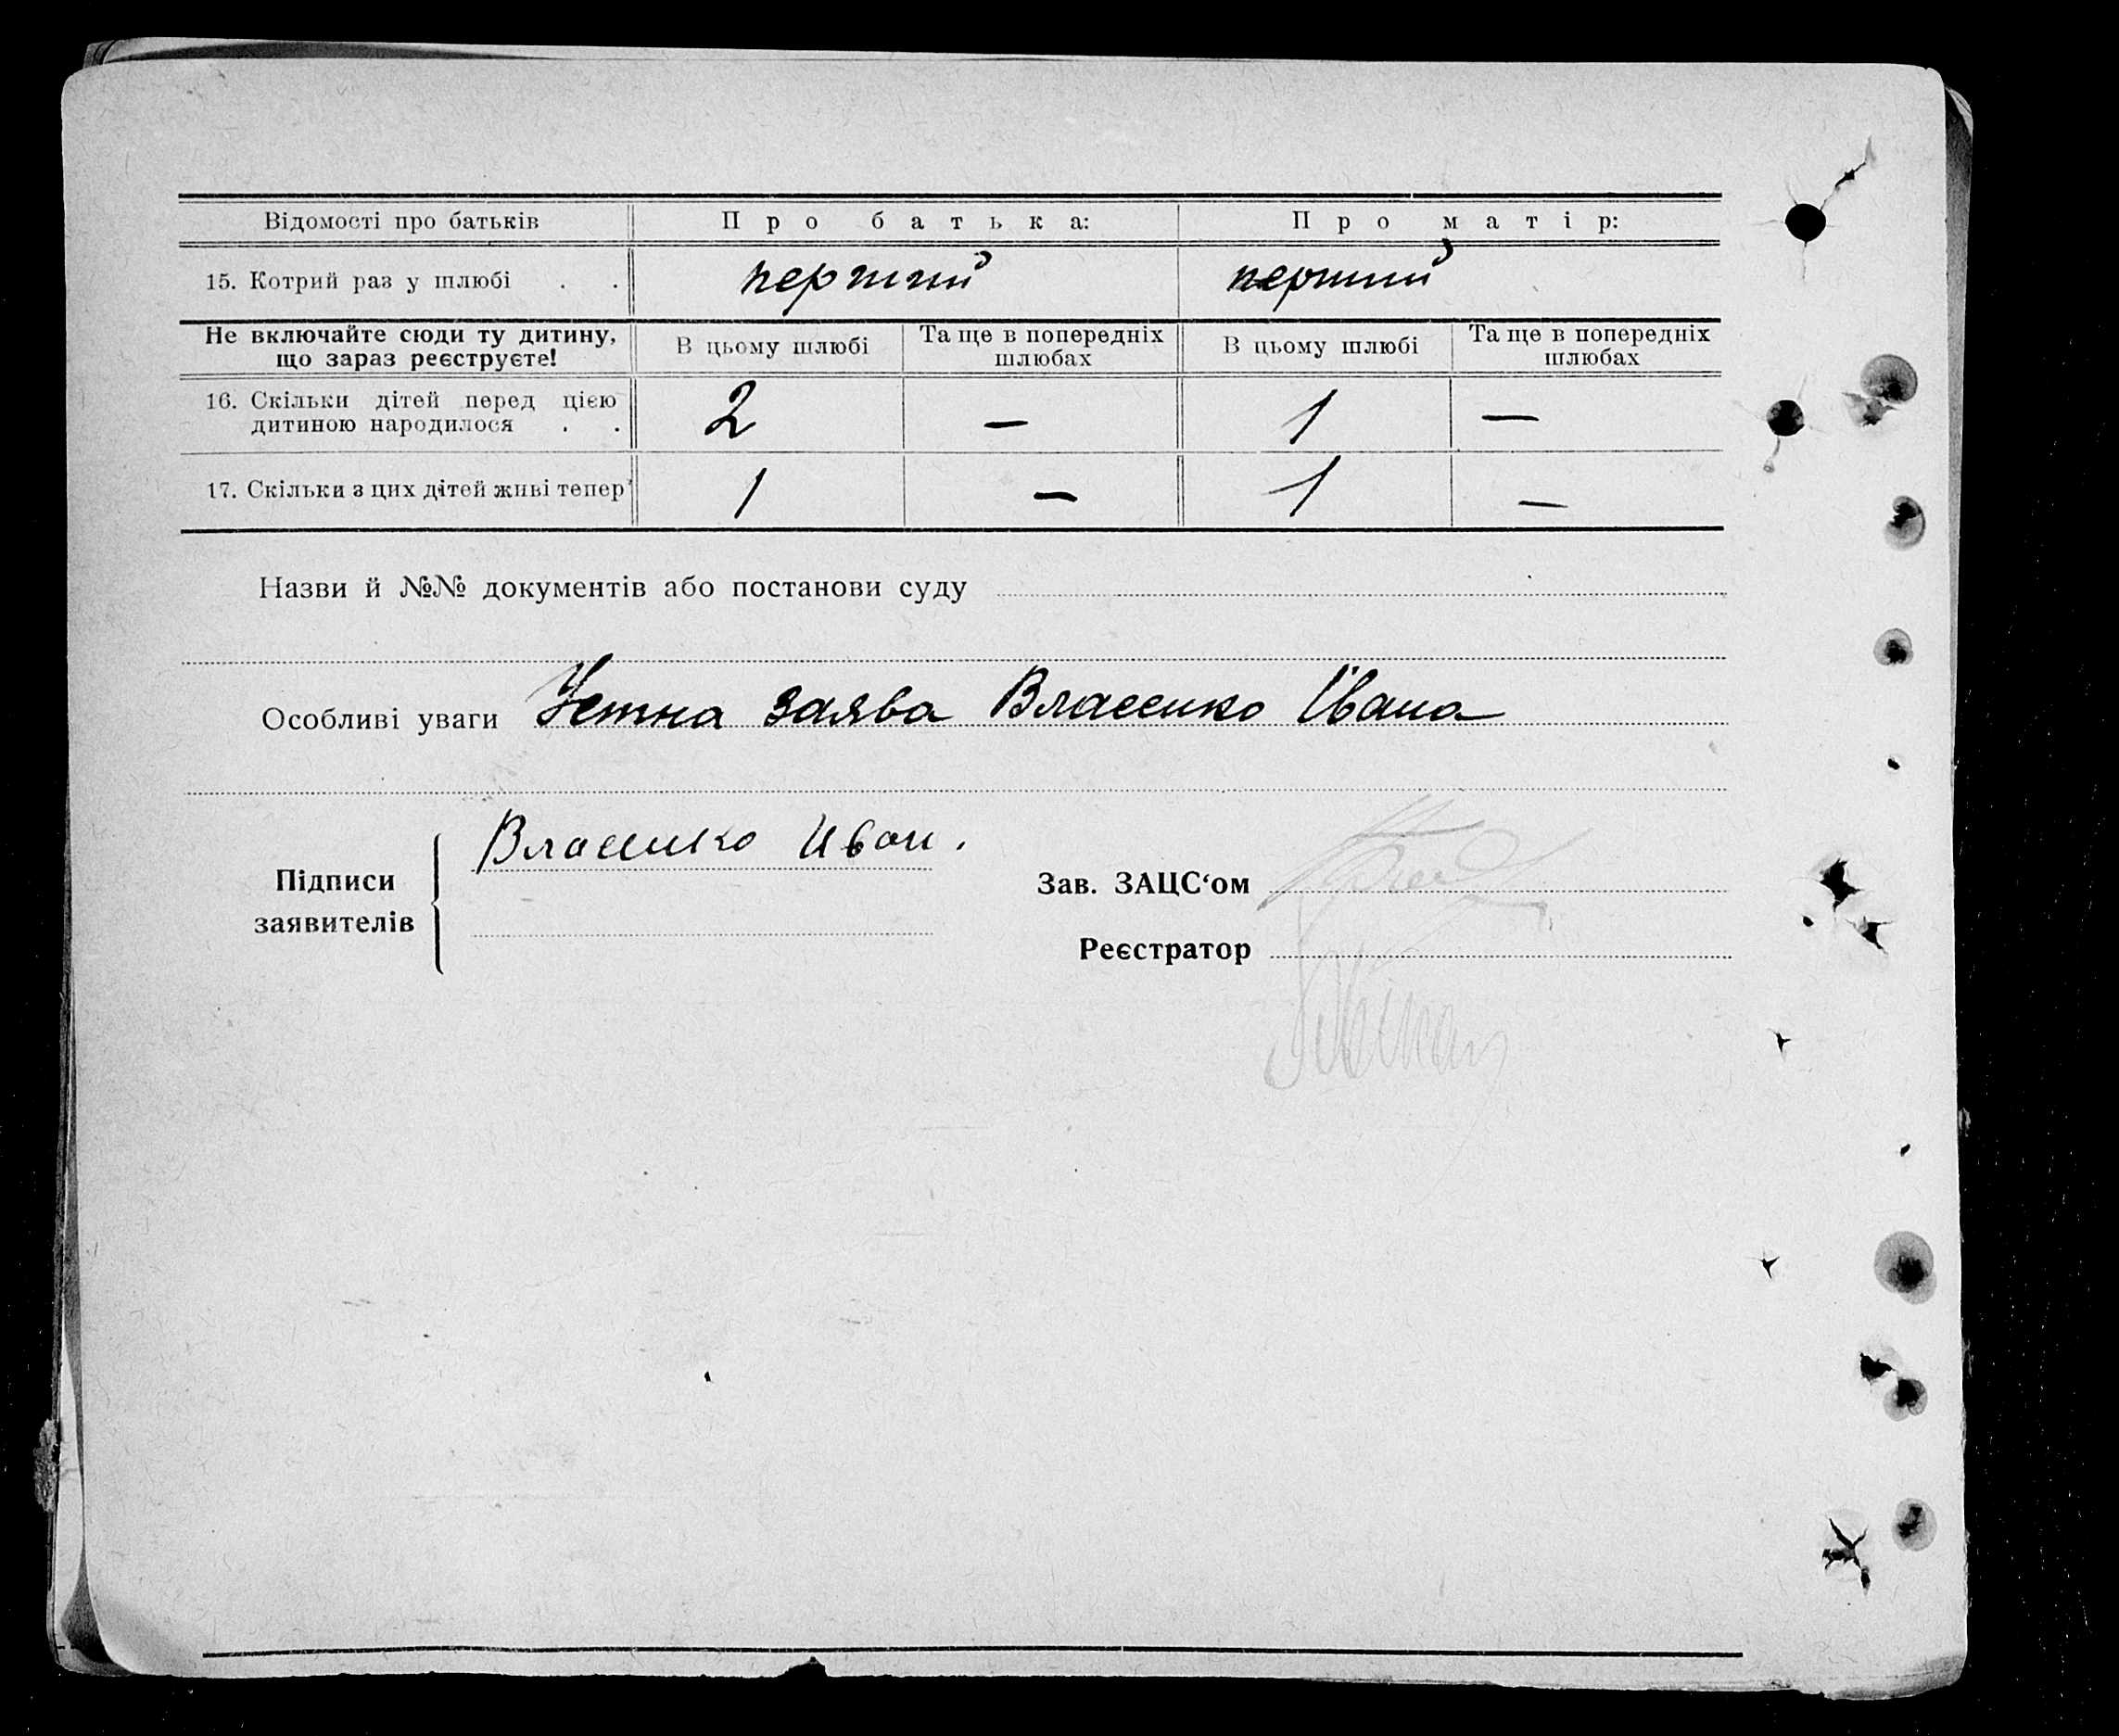 Відомості про батьків Про батька: Про матір:
15. Котрий раз у шлюбі . . перший перший
Не включайте сюди ту дитину, що зараз реєструєте! В цьому шлюбі Та ще в попередніх шлюбах В цьому шлюбі Та ще в попередніх шлюбах
16. Скільки дітей перед цією
дитиною народилося . . 2 — 1 —
17. Скільки з цих дітей живі тепер 1 — 1 —
Назви й №№ документів або постанови суду
Особливі уваги Устна заява Власенко Івана
Власенко Иван.
Підписи
заявителів
Зав. ЗАЦС‘ом
Реєстратор